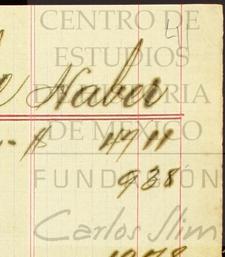 CENTRO DE
ESTUDIOS
DE HISTORIA
DE MÉXICO
FUNDACIÓN
Carlos Slim
Haber
$ 47 11
9 38